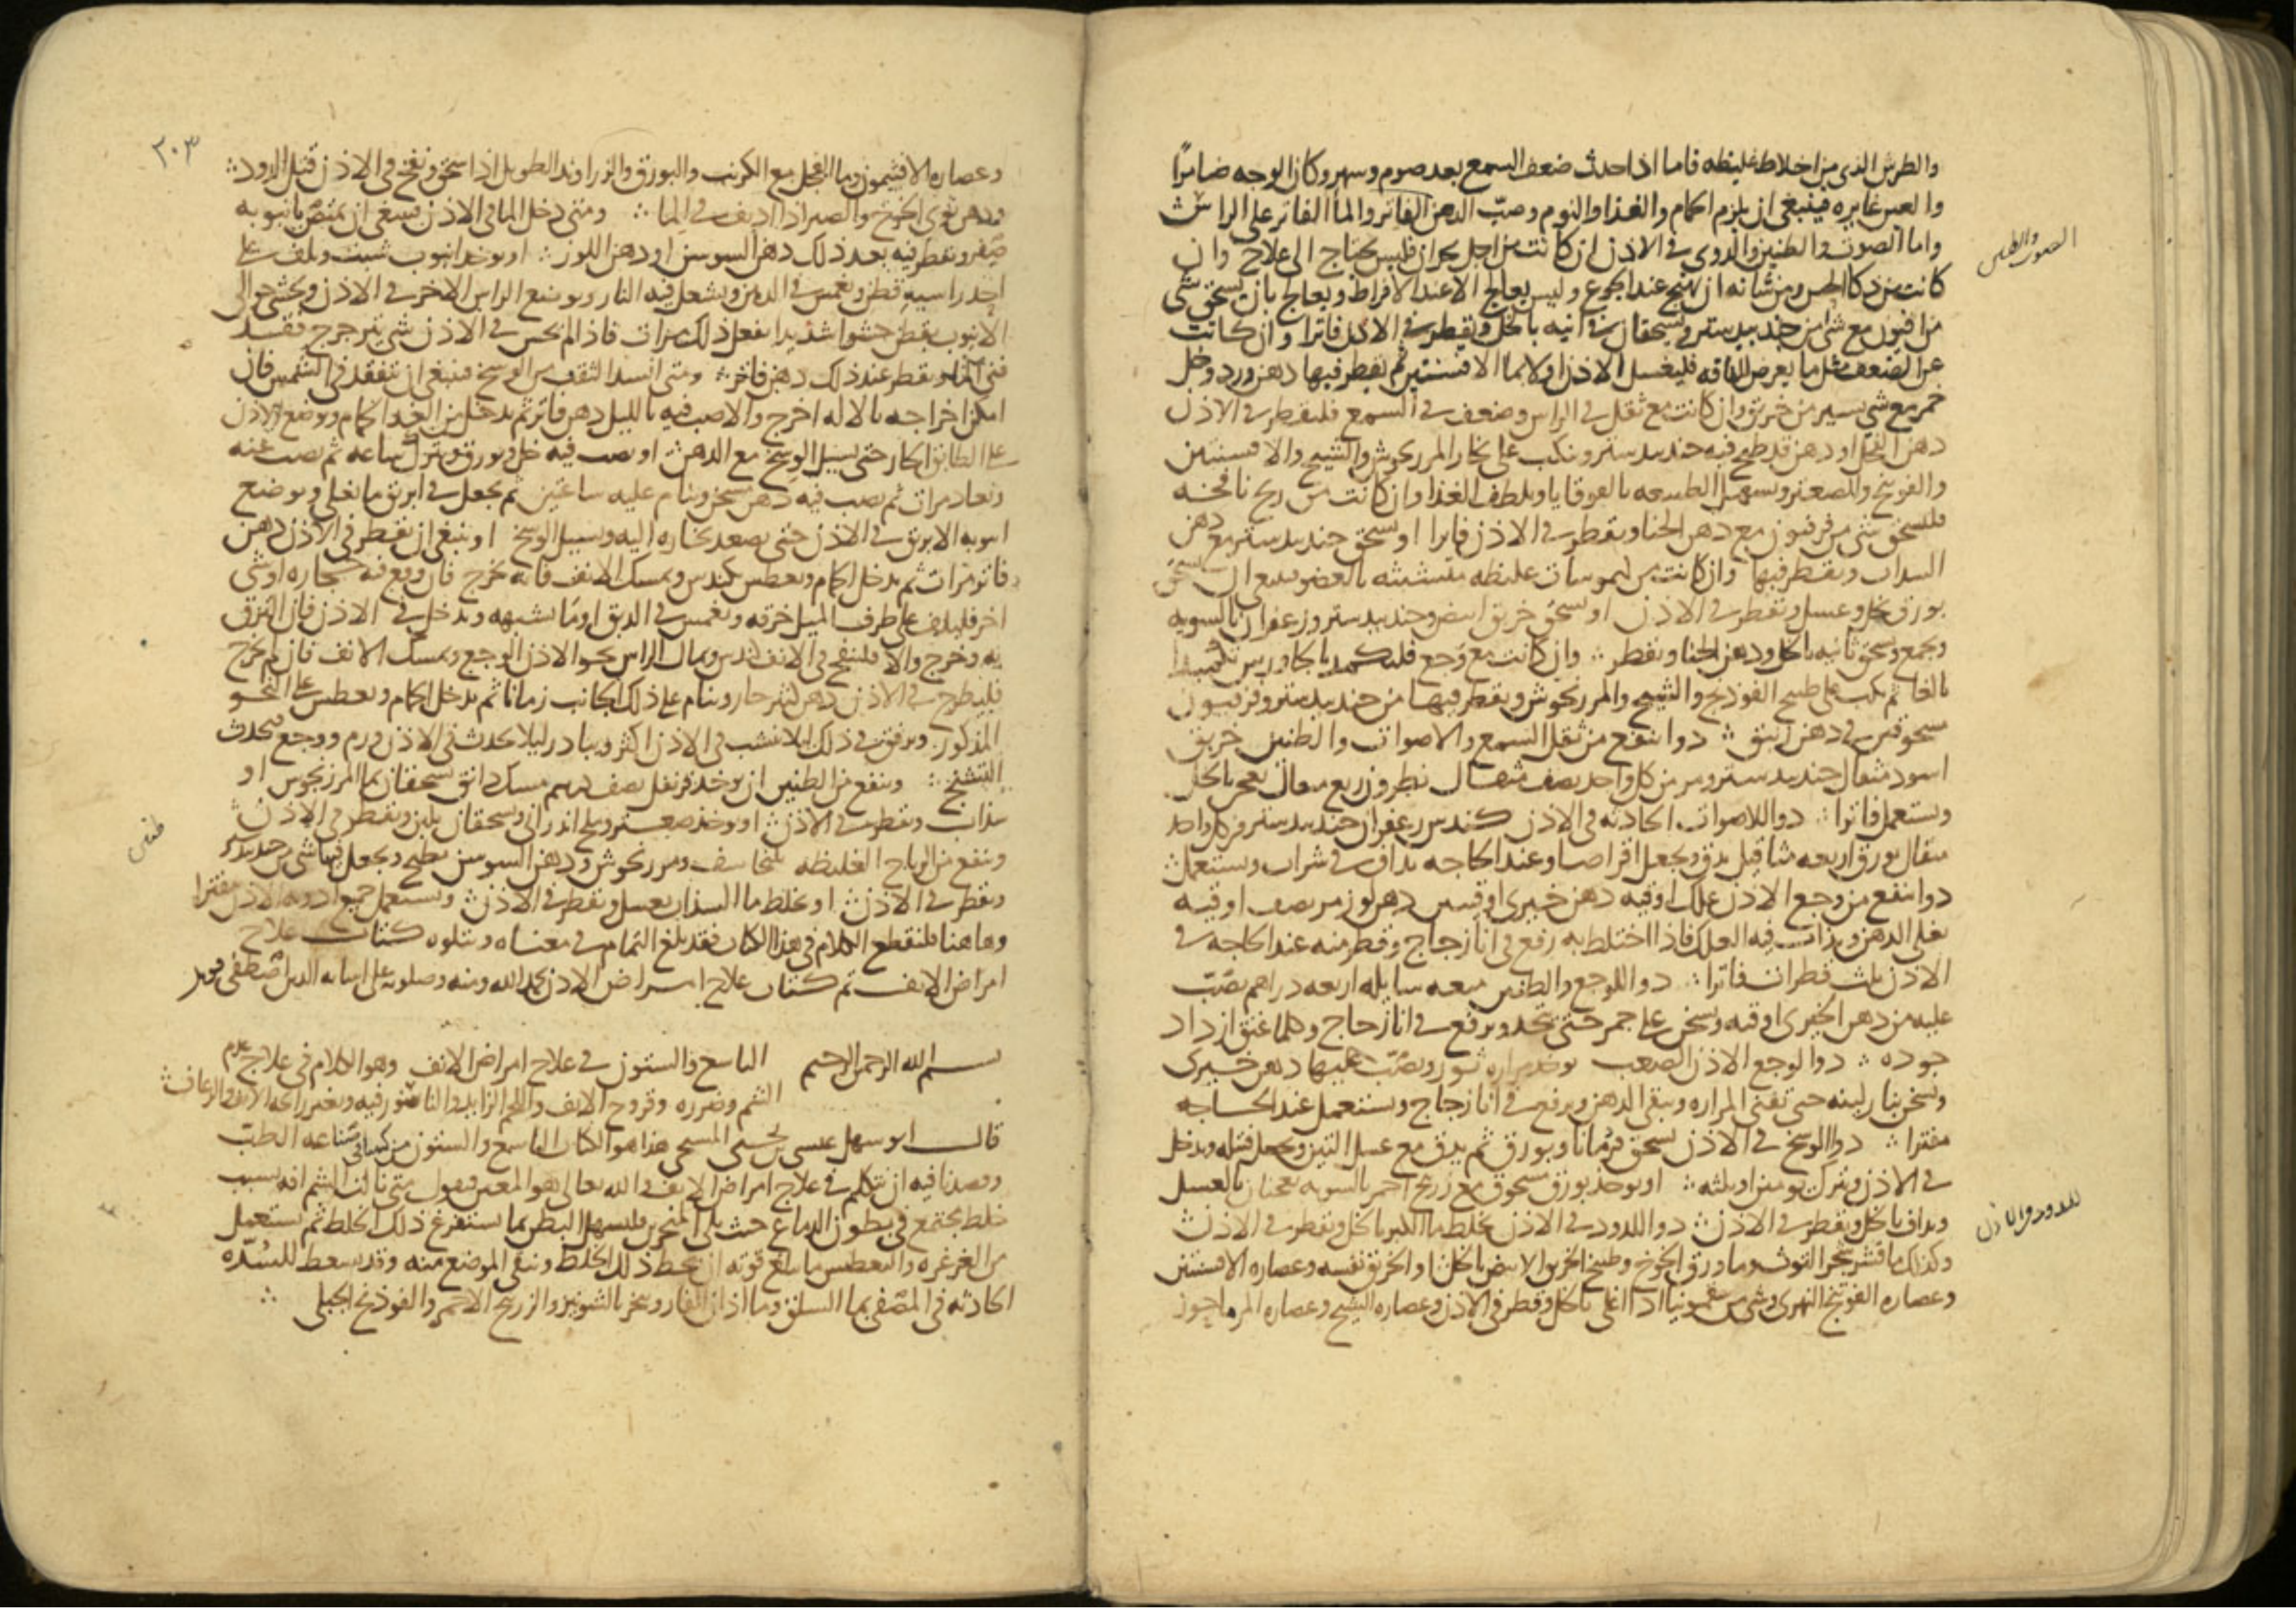 والطرش الذي من اخلاط غليظه فاما اذا حدث ضعف السمع بعد صوم وسهر وكان الوجه ضامرًا
والعين غايره فينبغي ان يلزم الحمام والغذا والنوم وصبّ الدهن الفاتر والمآ الفاتر على الراس
واما الصوت والطنين والدوي في الاذن ان كانت من اجل بحران فليس يحتاج الى علاج وان
كانت من ذكا الحس ومن شانه ان يهيج عند الجوع وليس يعالج الا عند الافراط ويعالج بان يسحق شي
من افيون مع شي من جندبيدستر ويسحقان في انيه بالخل ويقطر في الاذن فاترا وان كانت
عن الضعف مثل ما يعرض للناقه فليغسل الاذن اولا بما الافسنتين ثم يقطر فيها دهن ورد وخل
خمر مع شي يسير من خربق وان كانت مع ثقل في الراس وضعف في السمع فليقطر في الاذن
دهن الفجل او دهن قد طبخ فيه جندبيدستر ونكب على بخار المرزنجوش والشيح والافسنتين
والفوتنج والصعتر ويسهل الطبيعه بالقوقايا ويلطف الغذا وان كانت من ريح نافخه
فليسحق شي من فرفيون مع دهن الحنا ويقطر في الاذن فاترا او يسحق جندبيدستر مع دهن
السداب ويقطر فيها وان كانت من كيموسات غليظه متشبثه بالعضو فينبغي ان يسحق
بورق بخل وعسل ويقطر في الاذن او يسحق خربق ابيض وجندبيدستر وزعفران بالسويه
ويجمع ويسحق ثانيه بالخل ودهن الحنا ويقطر وان كانت مع وجع فليكمد بالجاورس تكميدا
بالغا ثم يكب على طبيخ الفوذنج والشيح والمرزنجوش ويقطر فيها من جندبيدستر وفرفيون
مسحوقين في دهن زنبق دوا ينفع من ثقل السمع والاصوات والطنين خربق
اسود مثقال جندبيدستر ومر من كل واحد نصف مثقال نطرون ربع مثقال يعجن بالخل
ويستعمل فاترا دوا للاصوات الحادثه في الاذن كندس زعفران جندبيدستر من كل واحد
مثقال بورق اربعه مثاقيل يدق ويجعل اقراصا وعند الحاجه يداف في شراب ويستعمل
دوا ينفع من وجع الاذن علك اوقيه دهن خيري اوقيتين دهن لوز مر نصف اوقيه
يغلى الدهن ويذاب فيه العلك فاذا اختلط به رفع في انا زجاج وقطر منه عند الحاجه في
الاذن ثلث قطرات فاترا دوا للوجع والطنين ميعه سايله اربعه دراهم يصبّ
عليه من دهن الخيري اوقيه ويسخن على جمر حتى يتحد ويرفع في انا زجاج وكلما عتق ازداد
جوده دوا لوجع الاذن الصعب يوخذ مراره ثور ويصّب عليها دهن خيرى
ويسخن بنار لينه حتى تفنى المراره ويبقى الدهن ويرفع في انا زجاج ويستعمل عند الحاجه
مفترا دوا للوسخ في الاذن يسحق قردمانا وبورق ثم يدق مع عسل التين ويجعل فتيله ويدخل
في الاذن ويترك يومين او ثلثه او يوخذ بورق مسحوق مع زرنيخ احمر بالسويه يعجنان بالعسل
ويداف بالخل ويقطر في الاذن دوا للدود في الاذن يخلط ما الكبر بالخل ويقطر في الاذن
وكذلك ما قشر شجر التوث وما ورق الخوخ وطبيخ الخربق الابيض بالخل او الخربق نفسه وعصاره الافسنتين
وعصاره الفوتنج النهري وشي من سقمونيا اذا اغلي بالخل وقطر في الاذن وعصاره الشيح وعصاره المرماحوز
الصوت والطنين
للدود في الاذن
٣٠٣
وعصاره الافثيمون وما الفجل مع الكرنب والبورق والزراوند الطويل اذا سحق ونفخ في الاذن قتل الدود
ودهن نوى الخوخ والصبر اذا اديف في الما ومتى دخل الما في الاذن فينبغي ان يمتص بانبوبه
صفر ويقطر فيه بعد ذلك دهن السوسن او دهن اللوز او يوخذ انبوب شبث ويلف على
احد راسيه قطن ويغمس في الدهن ويشعل فيه النار ويوضع الراس الاخر في الاذن ويحشى حوالى
الانبوب بقطن حشوا شديدا يفعل ذلك مرات فاذا لم يحس في الاذن شي يترجرج فقد
فني الما ويقطر عند ذلك دهن فاتر ومتى انسد الثقب من الوسخ فينبغي ان يتفقد في الشمس فان
امكن اخراجه بالاله اخرج والا صب فيه بالليل دهن فاتر ثم يدخل من الغد الحمام ويوضع الاذن
على الطابق الحار حتى يسيل الوسخ مع الدهن او يصب فيه خل وبورق ويترك ساعه ثم يصب عنه
ويعاد مرات ثم يصب فيه دهن مسخن وينام عليه ساعتين ثم يجعل في ابريق ما يغلي ويوضع
انبوبه الابريق في الاذن حتى يصعد بخاره اليه ويسيل الوسخ او ينبغي ان يقطر في الاذن دهن
فاتر مرات ثم يدخل الحمام ويعطس بكندس ويمسك الانف فانه يخرج فان وقع فيه حجاره او شي
اخر فليلف على طرف الميل خرقه ويغمس في الدبق او ما يشبهه ويدخل في الاذن فان التزق
به وخرج والا فلينفخ في الانف كندس ويمال الراس نحو الاذن الوجع ويمسك الانف فان لم يخرج
فليطرح في الاذن دهن كثير حار وينام على ذلك الجانب زمانا ثم يدخل الحمام ويعطس على النحو
المذكور ويرفق في ذلك ليلا ينشب في الاذن اكثر ويبادر ليلا يحدث في الاذن ورم ووجع فيحدث
التشنج وينفع من الطنين ان يوخذ قرنفل نصف درهم مسك دانق يسحقان بما المرزنجوش او
سذاب ويقطر في الاذن او يوخذ صعتر وملح اندراني ويسحقان بلبن ويقطر في الاذن
وينفع من الرياح الغليظه بلنجاسف ومرزنجوش ودهن السوسن يطبخ ويجعل فيها شي من جندبيدستر
ويقطر في الاذن او يخلط ما السذاب بعسل ويقطر في الاذن ويستعمل جميع ادويه الاذن مفترا
وهاهنا فلنقطع الكلام في هذا الكتاب فقد بلغ التمام في معناه ويتلوه كتاب علاج
امراض الانف تم كتاب علاج امراض الاذن بحمد الله ومنه وصلوته على انبيايه الذين اصطفى
بسم الله الرحمن الرحيم التاسع والستون في علاج امراض الانف وهو الكلام في علاج عدم
الشم وضرره وقروح الانف واللحم الزايد والناصور فيه وتغير رائحه الانف والرعاف
قال ابو سهل عيسى بن يحيى المسيحي هذا هو الكتاب التاسع والستون من كتابي في صناعه الطبّ
وقصدنا فيه ان نتكلم في علاج امراض الانف والله تعالى هو المعين فنقول متى نالت الشم افه بسبب
خلط مجتمع في بطون الدماغ حيث يلى المنخرين فليسهل البطن بما يستفرغ ذلك الخلط ثم يستعمل
من الغرغره والتعطيس ما يبلغ قوته ان يحط ذلك الخلط وينقى الموضع منه وقد يسعط للسُدّه
الحادثه في المصفى بما السلق وما اذان الفار ويبخر بالشونيز والزرنيخ الاحمر والفوذنج الجبلى
طنين